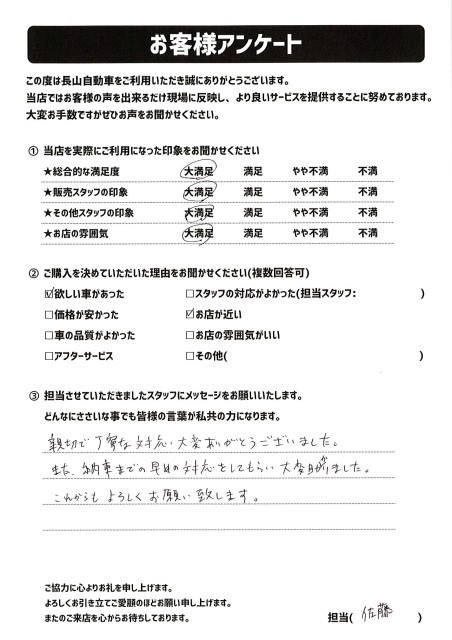 お客様アンケート
この度は長山自動車をご利用いただき誠にありがとうございます。
当店ではお客様の声を出来るだけ現場に反映し、より良いサービスを提供することに努めております。
大変お手数ですがぜひお声をお聞かせください。
① 当店を実際にご利用になった印象をお聞かせください
★総合的な満足度 大満足 満足 やや不満 不満
★販売スタッフの印象 大満足 満足 やや不満 不満
★その他スタッフの印象 大満足 満足 やや不満 不満
★お店の雰囲気 大満足 満足 やや不満 不満
② ご購入を決めていただいた理由をお聞かせください(複数回答可)
☑欲しい車があった □スタッフの対応がよかった(担当スタッフ: )
□価格が安かった ☑お店が近い
□車の品質がよかった □お店の雰囲気がいい
□アフターサービス □その他( )
③ 担当させていただきましたスタッフにメッセージをお願いいたします。
どんなにささいな事でも皆様の言葉が私共の力になります。
親切で丁寧な対応、大変ありがとうございました。
また、納車までの早めの対応をしてもらい大変助かりました。
これからもよろしくお願い致します。
ご協力に心よりお礼を申し上げます。
よろしくお引き立てご愛顧のほどお願い申し上げます。
またのご来店を心からお待ちしております。
担当( 佐藤 )